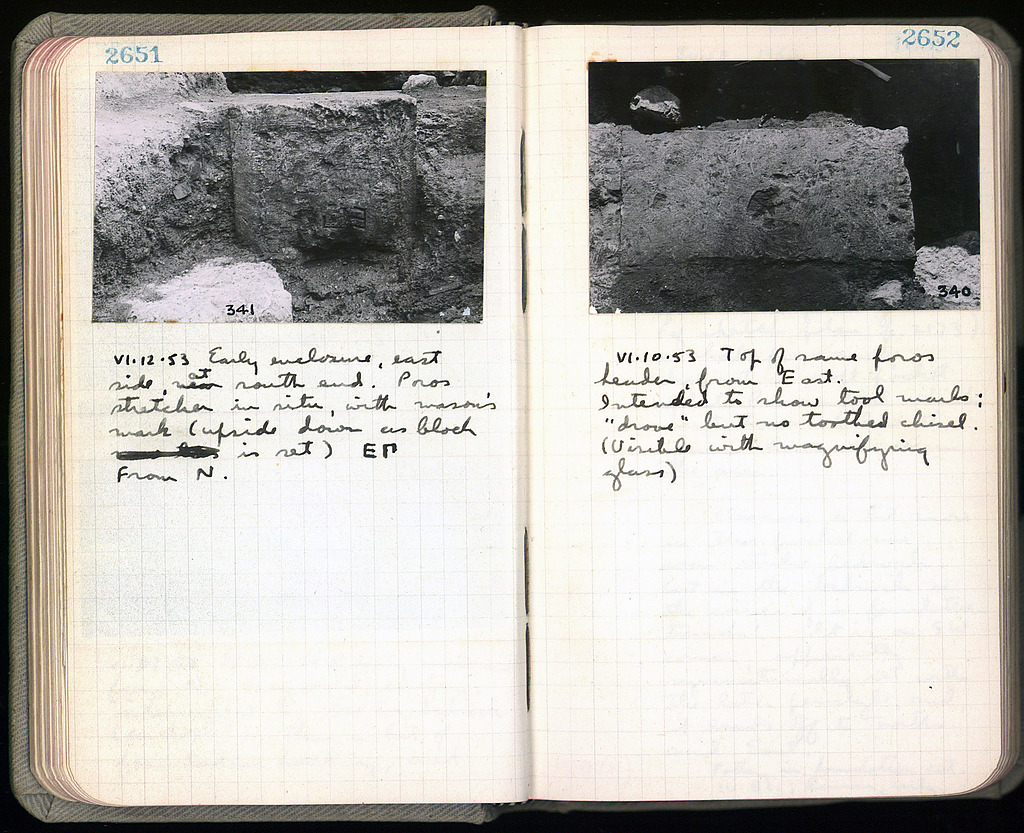 2651
341
VI.12.53 Early enclosure, east
side, at south end. Poros
stretcher in situ, with mason's
mark (upside down as block
is set) ΕΠ
From N.
2652
340
VI.10.53 Top of same poros
header, from East.
Intended to show tool marks:
"drove" but no toothed chisel.
(Visible with magnifying
glass)